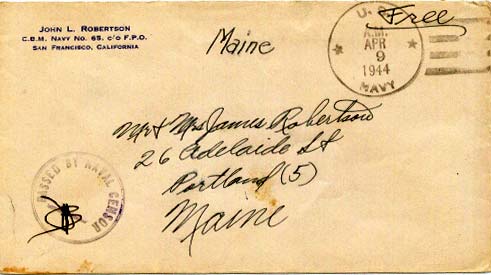 JOHN L. ROBERTSON
C.B.M. NAVY NO. 65. c/o F.P.O.
SAN FRANCISCO, CALIFORNIA
Maine
Free
U.S.
A.M.
APR
9
1944
NAVY
Mr & Mrs James Robertson
26 Adelaide St
Portland (5)
Maine
PASSED BY NAVAL CENSOR